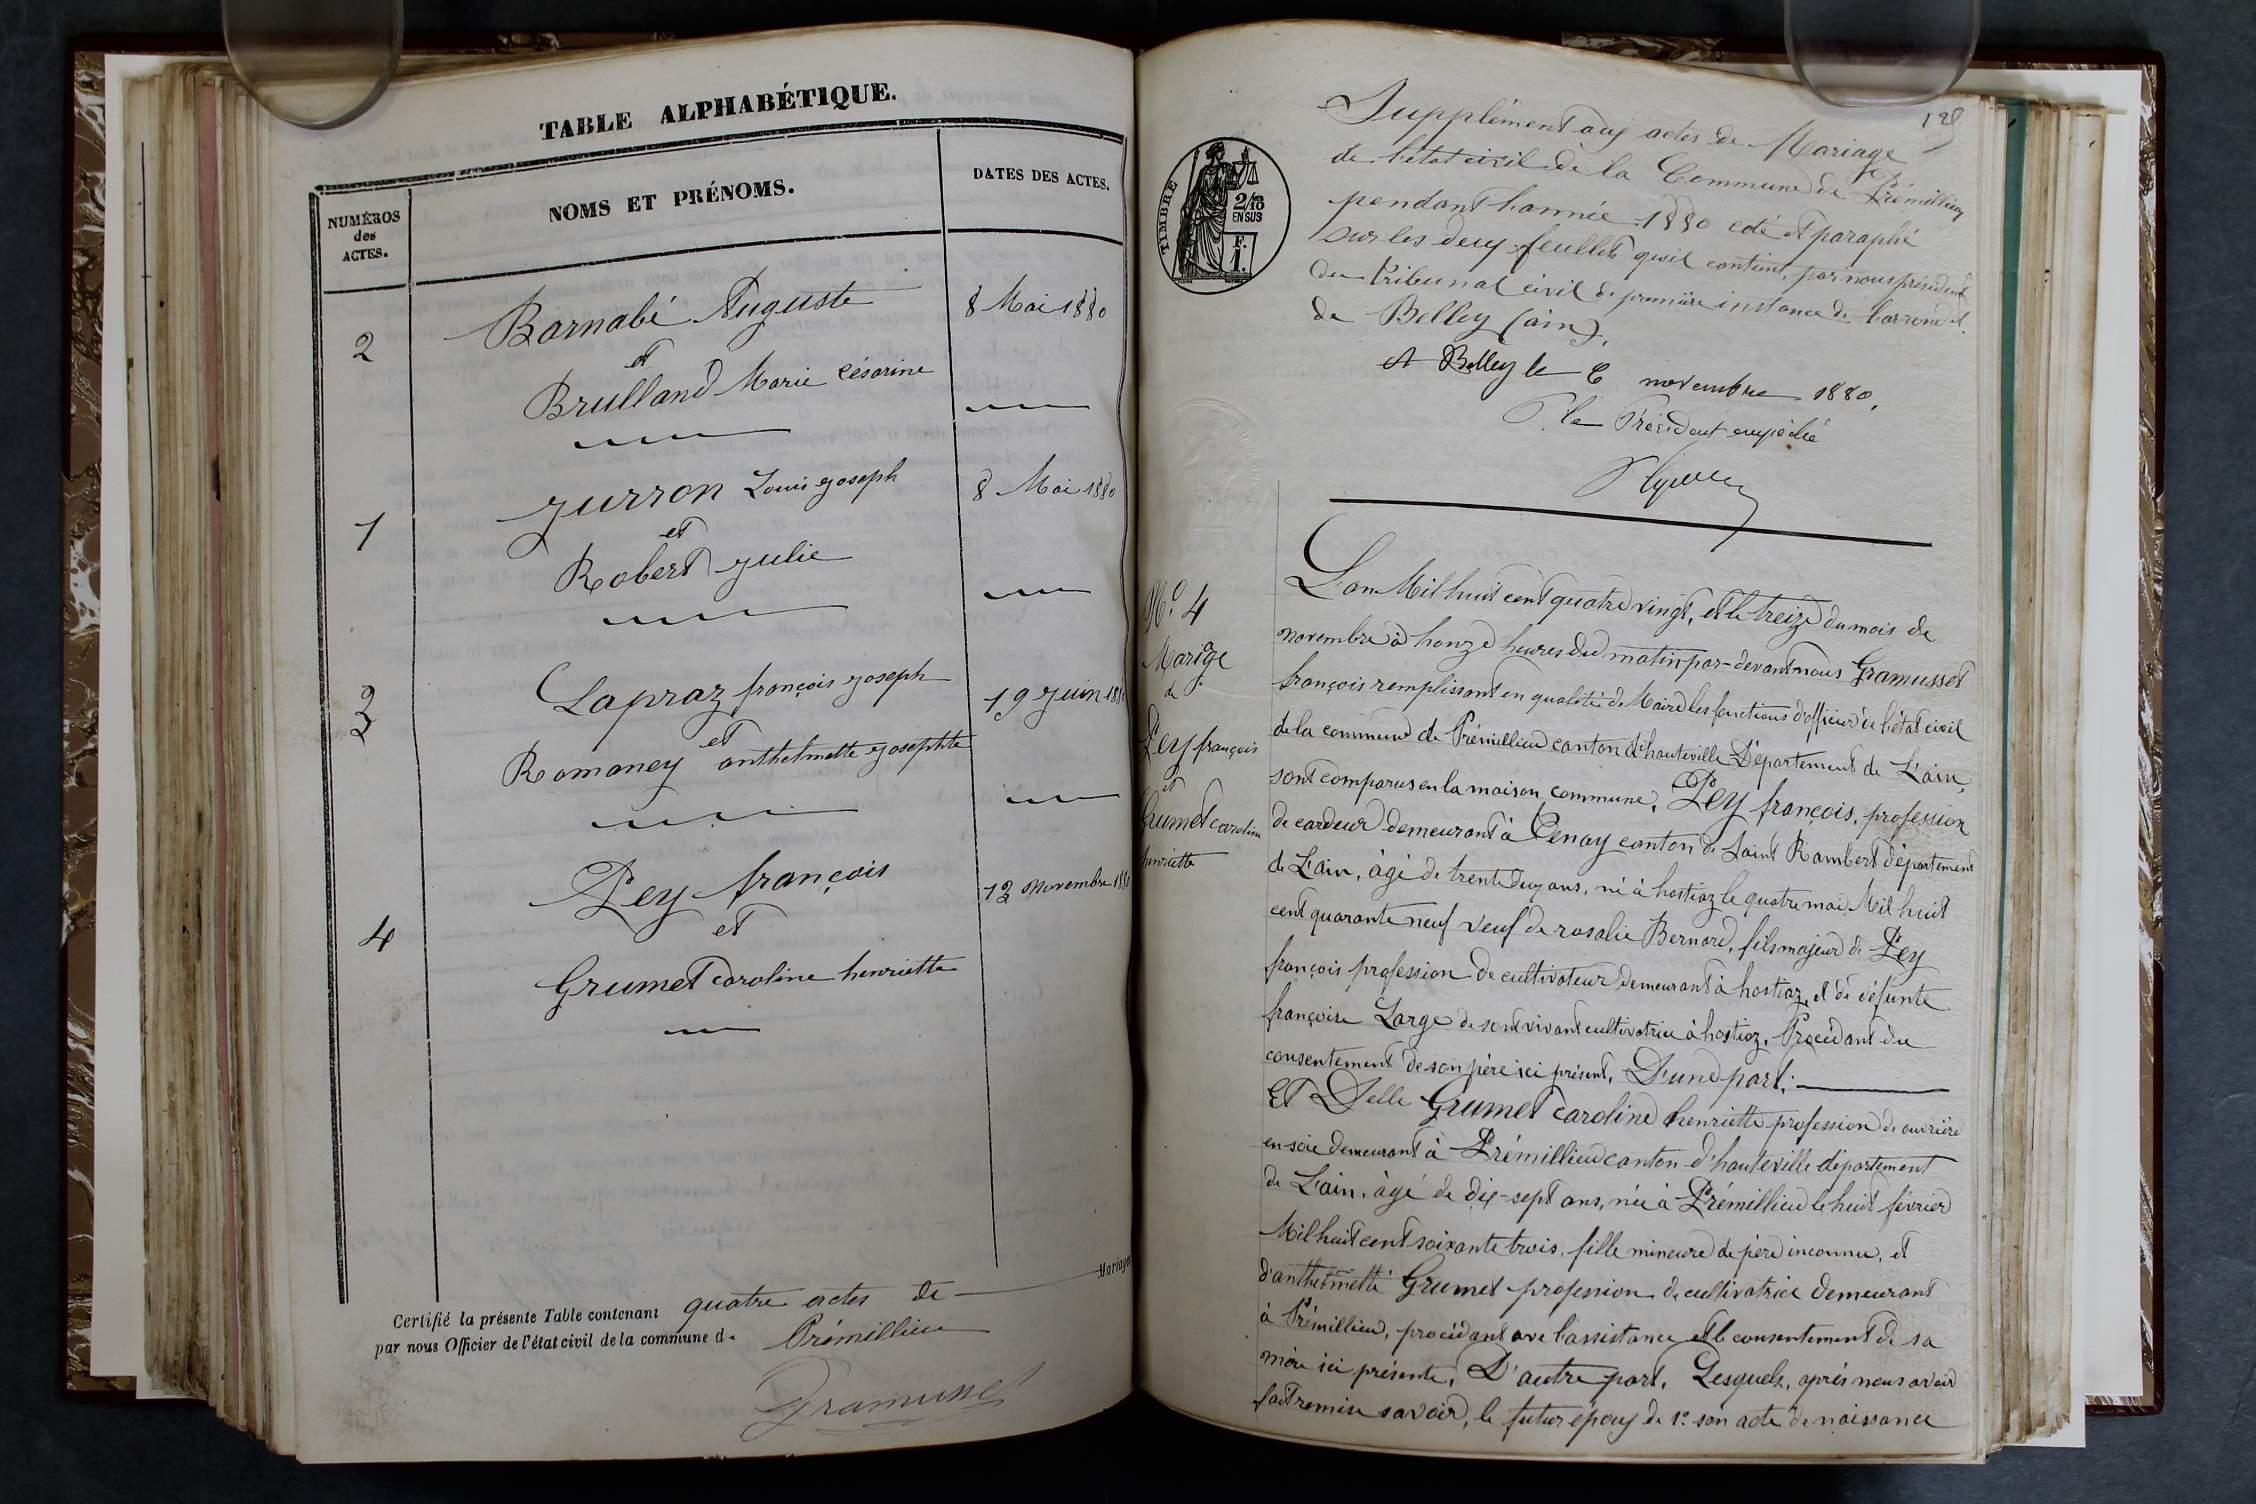 TABLE ALPHABÉTIQUE.
NUMÉROS
des
ACTES.
NOMS ET PRÉNOMS.
DATES DES ACTES.
2
Barnabé Auguste
8 Mai 1880
et
Brulland Marie césarine
1
Jurron Louis Joseph
8 Mai 1880
et
Robert Julie
3
Lapraz françois Joseph
19 Juin 188
et
Romaney anthelmette Josephte
4
Pey françois
13 Novembre 1880
et
Grumet caroline henriette
Certifié la présente Table contenant quatre actes de Mariages
par nous Officier de l'état civil de la commune de Prémillieu
Gramusset
128
TIMBRE
2/10
EN SUS
F.
1.
Supplément aux actes de Mariage
de l'état civil de la Commune de Prémillieu
pendant l'année 1880 coté et paraphé
sur les deux feuillets qu'il contient, par nous président
du tribunal civil de première instance de l'arrond.t
de Belley (ain).
A Belley le 6 novembre 1880.
P. le Président empêché
N.º 4
Marige
de
Pey françois
et
Grumet caroline
henriette
L'an Mil huit cent quatre vingt, et le treize du mois de
novembre à honze heures du matin par-devant nous Gramusset
françois remplissant en qualité de Maire les fonctions d'officier de l'état civil
de la commune de Prémillieu canton d'hauteville Département de L'ain,
sont comparus en la maison commune, Pey françois, profession
de cardeur demeurant à Tenay canton de Saint Rambert département
de L'ain, âgé de trente deux ans, né à hostiaz le quatre mai Mil huit
cent quarante neuf veuf de rosalie Bernard, fils majeur de Pey
françois profession de cultivateur demeurant à hostiaz, et de défunte
françoise Large de sont vivant cultivatrice à hostiaz. Procédant du
consentement de son père ici présent, D'une part:
Et Delle Grumet caroline henriette profession de ouvrière
en soie demeurant à Prémillieu canton d'hauteville département
de L'ain, âgé de dix-sept ans, née à Prémillieu le huit février
Mil huit cent soixante trois, fille mineure de père inconnu, et
d'anthelmette Grumet profession de cultivatrice demeurant
à Prémillieu, procédant ave l'assistance et le consentement de sa
mère ici présente, D'autre part. Lesquels, après nous avoir
fait remise savoir, le futur époux de 1º son acte de naissance